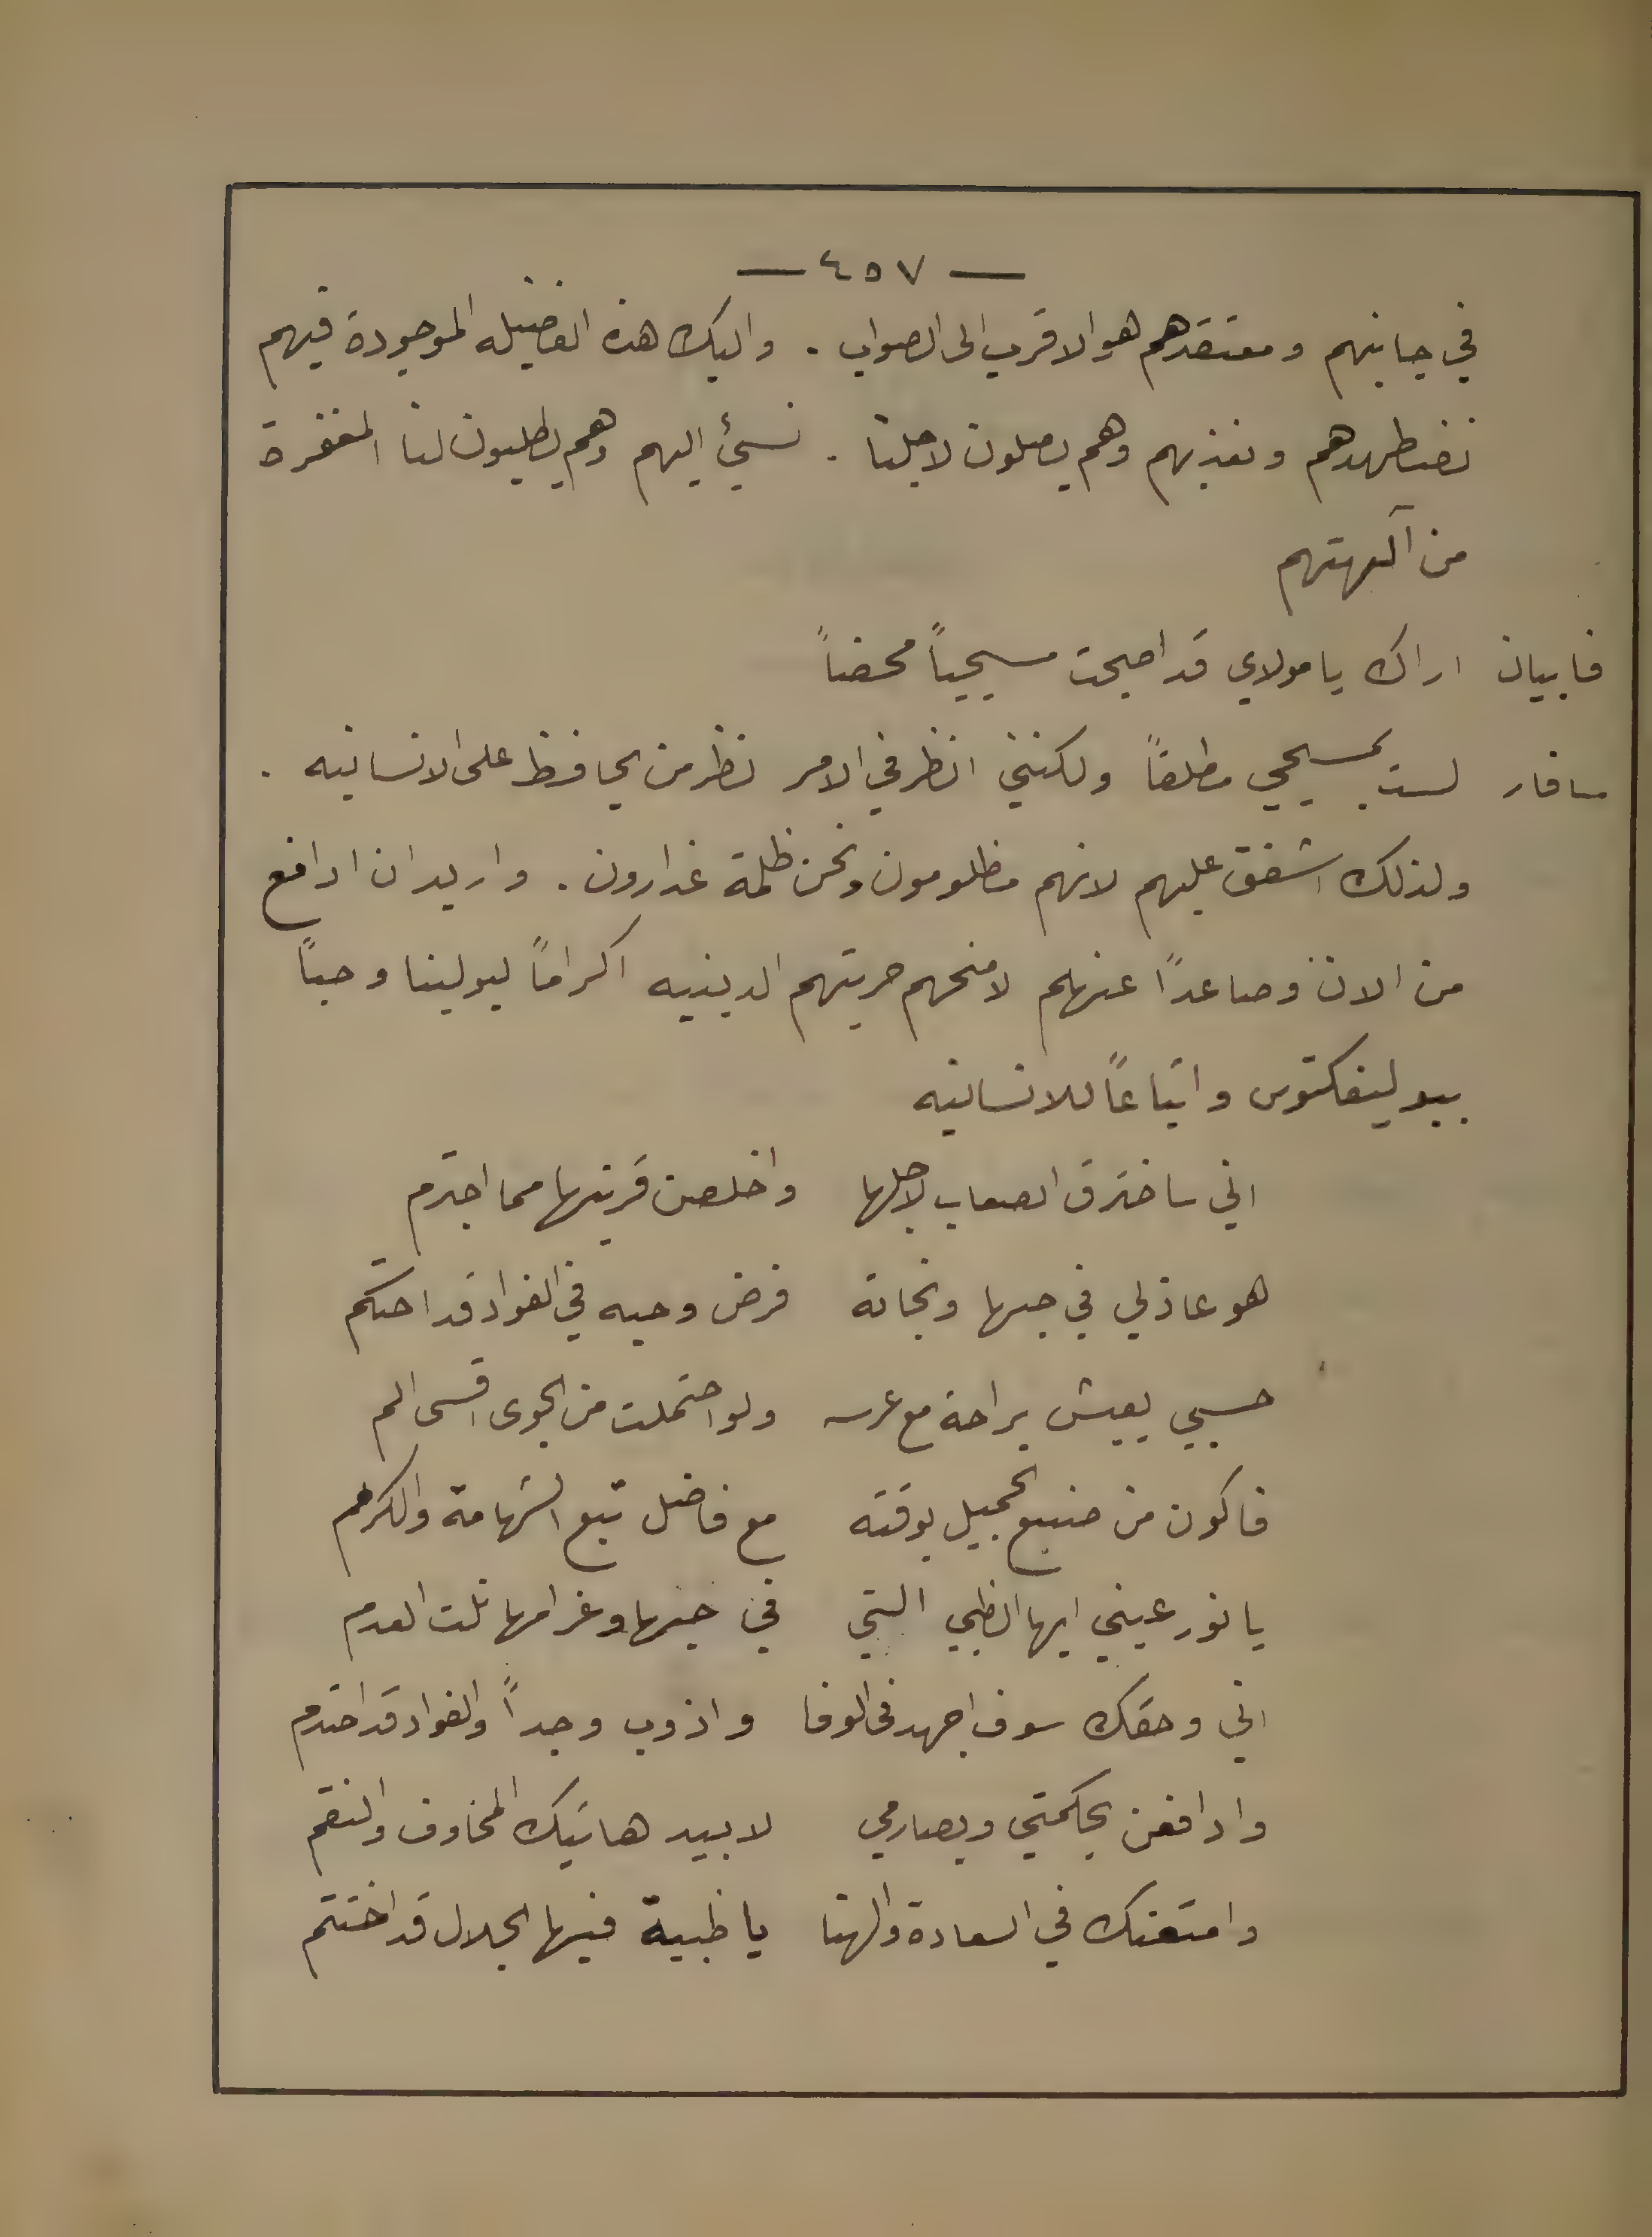 — ٤٥٧ —
في جانبهم ومعتقدهم هو الاقرب الى الصواب . واليك هذه الفضيله الموجودة فيهم
نضطهدهم ونعذبهم وهم يصلون لاجلنا . نسيئ اليهم وهم يطلبون لنا المغفرة
من آلهتهم
فابيان اراك يا مولاي قد اصبحت مسيحياً محضاً
سافار لست بمسيحي مطلقاً ولكنني انظر في الامر نظر من يحافظ على الانسانيه .
ولذلك اشفق عليهم لانهم مظلومون ونحن ظلمة غدارون . واريد ان ادافع
من الان وصاعداً عنهم لامنحهم حريتهم الدينيه اكراماً لبولينا وحباً
ببولينكتوس واتباعاً للانسانيه
اني ساخترق الصعاب لاجلها واخلصن قرينها مما اجترم
هو عاذلي في حبها ونجاته فرض وحبه في الفواد قد احتكم
حسبي يعيش براحة مع عرسه ولو احتملت من الجوى اقسى الم
فاكون من صنيع الجميل بوقته مع فاضل تبع الشهامة والكرم
يا نور عيني ايها الظبي التي في حبها وغرامها نلت العدم
اني وحقك سوف اجهد في الوفا واذوب وجداً والفواد قد احتدم
وادافعن بحكمتي وبصارمي لابيد هاتيك المخاوف والنقم
وامتعنك في السعادة والهنا يا ظبية فيها الجلال قد اختتم